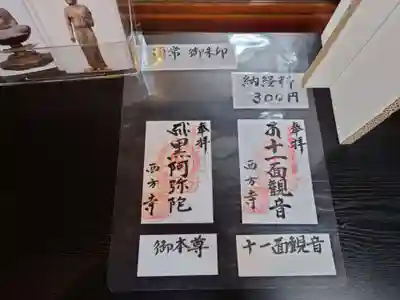 通常 御朱印
納経料
300円
奉拝
十一面観音
西方寺
奉拝
黒阿弥陀
西方寺
御本尊
十一面観音